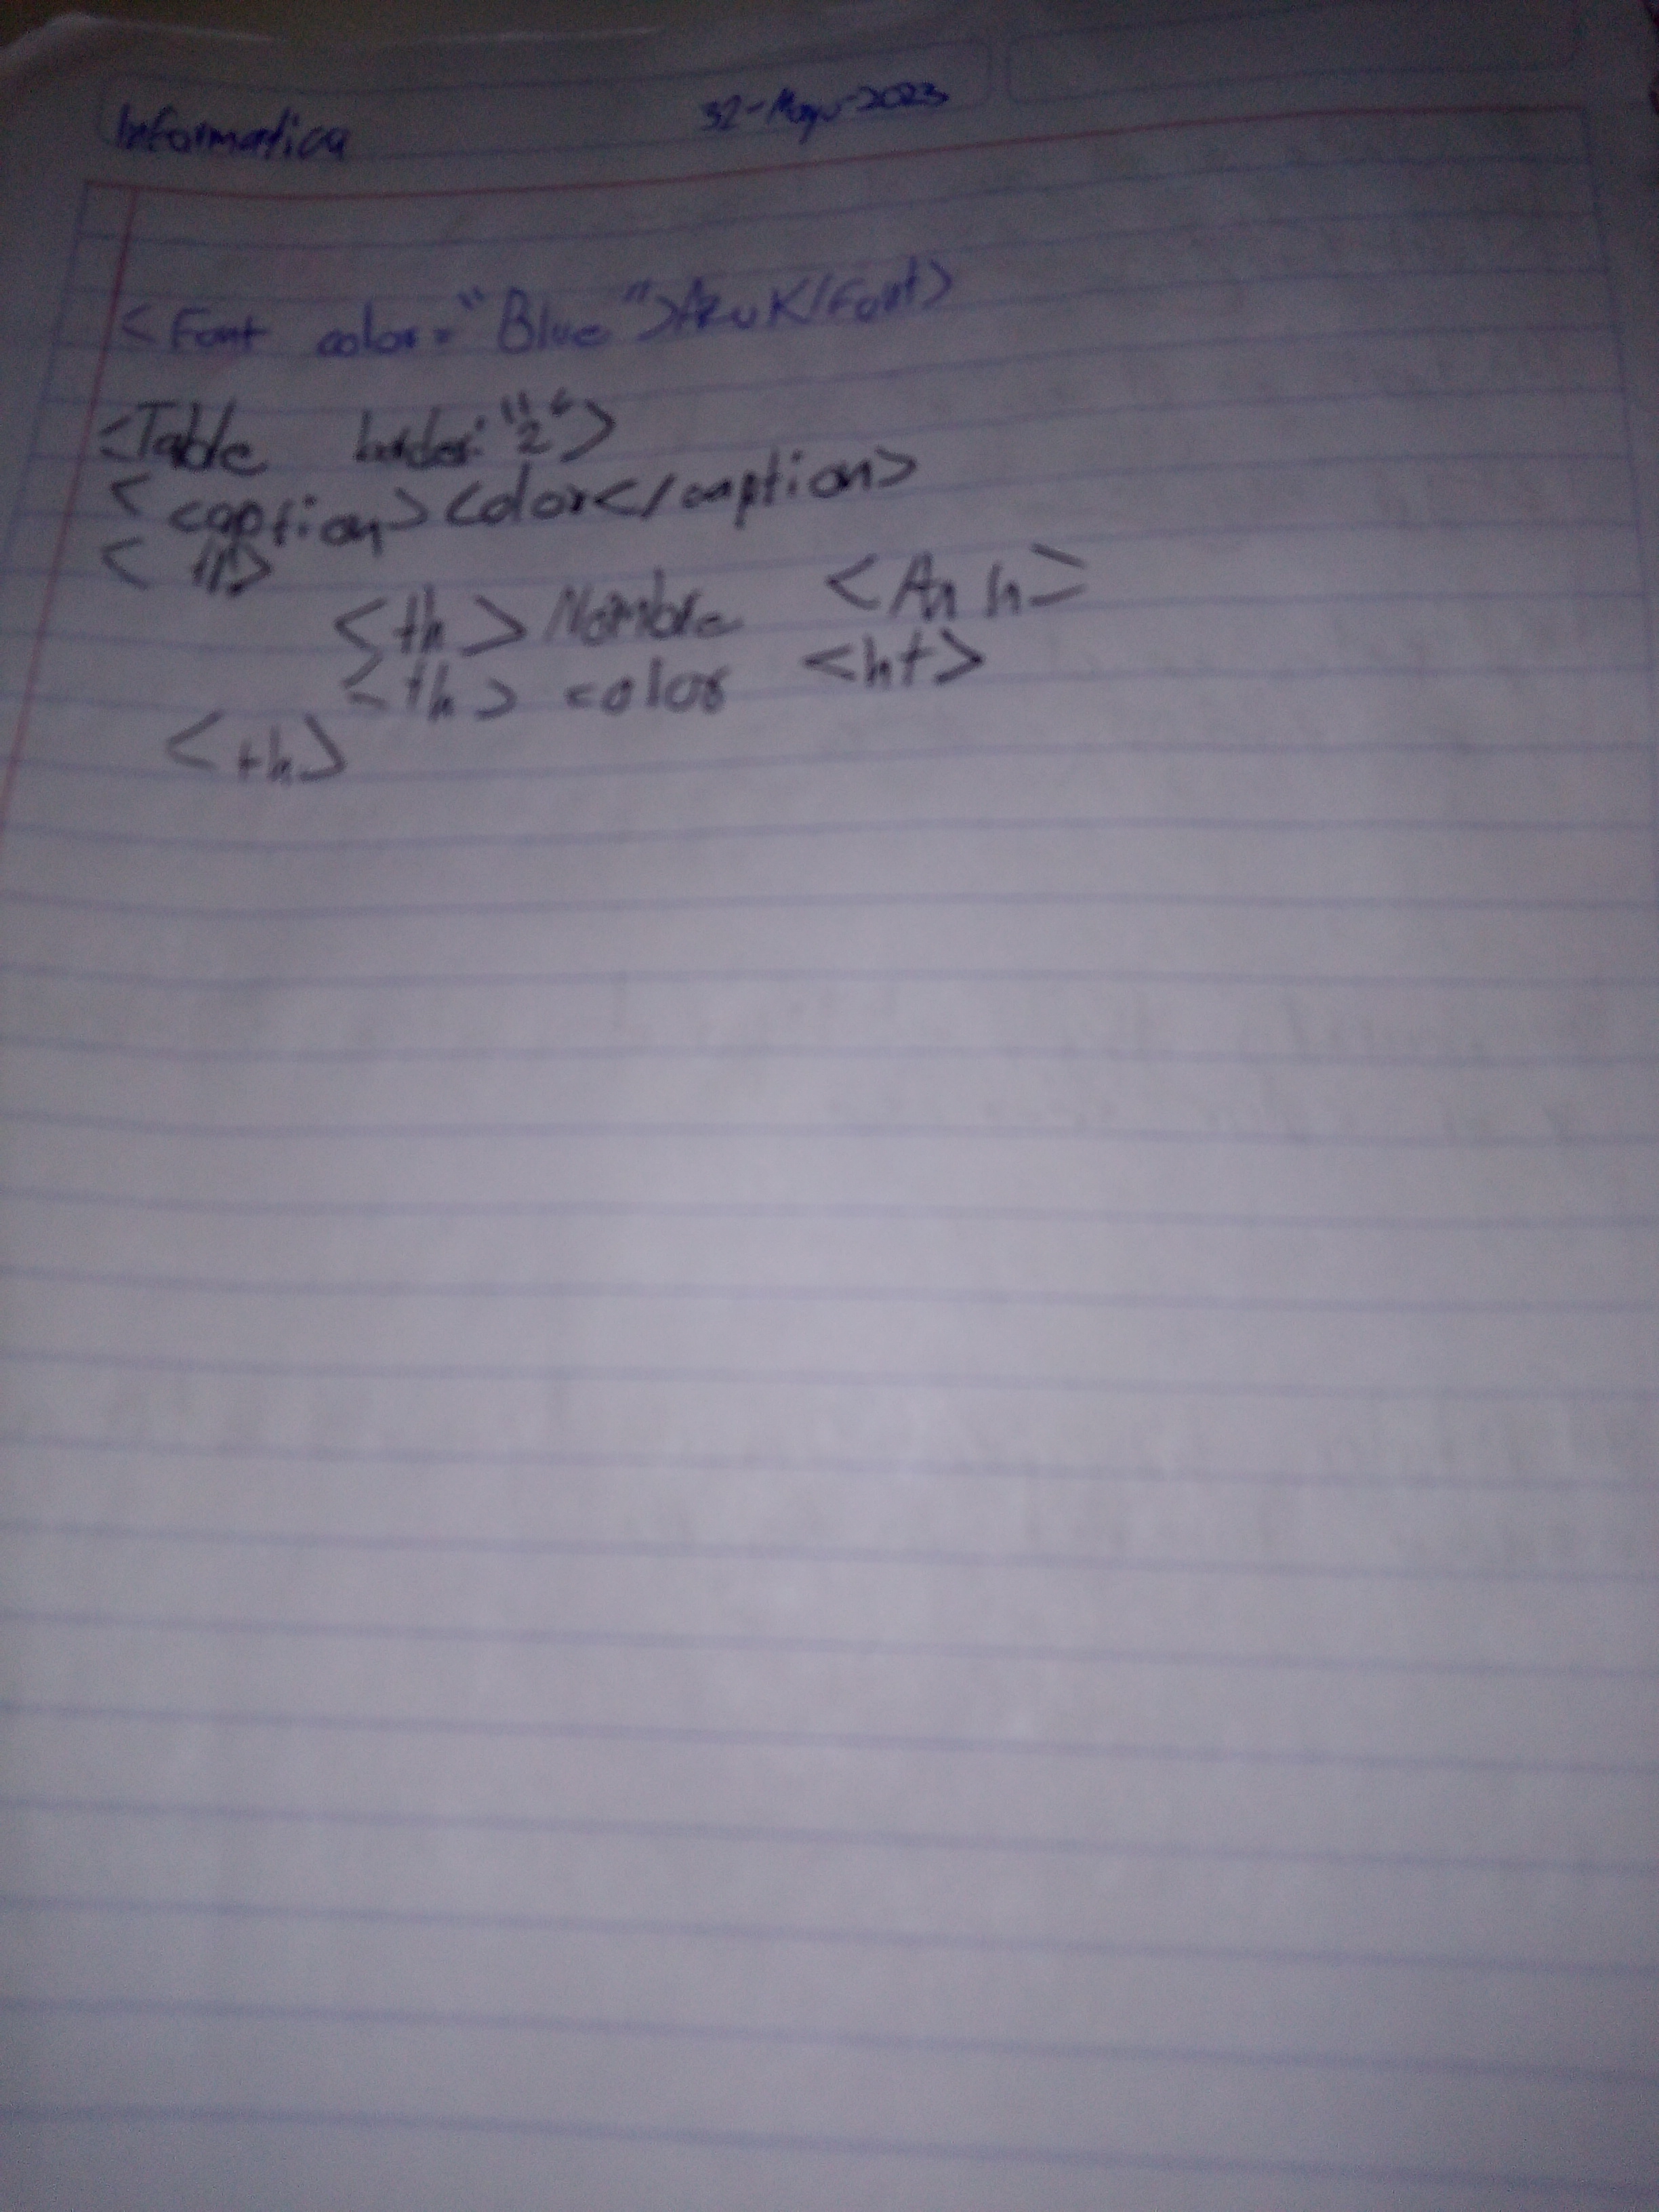 Informatica 32-Mayo-2023
<Font color="Blue">Azul</Font>
<Table border:"2">
<caption>Color</caption>
<th> Nombre
<th> color <ht>
<th>